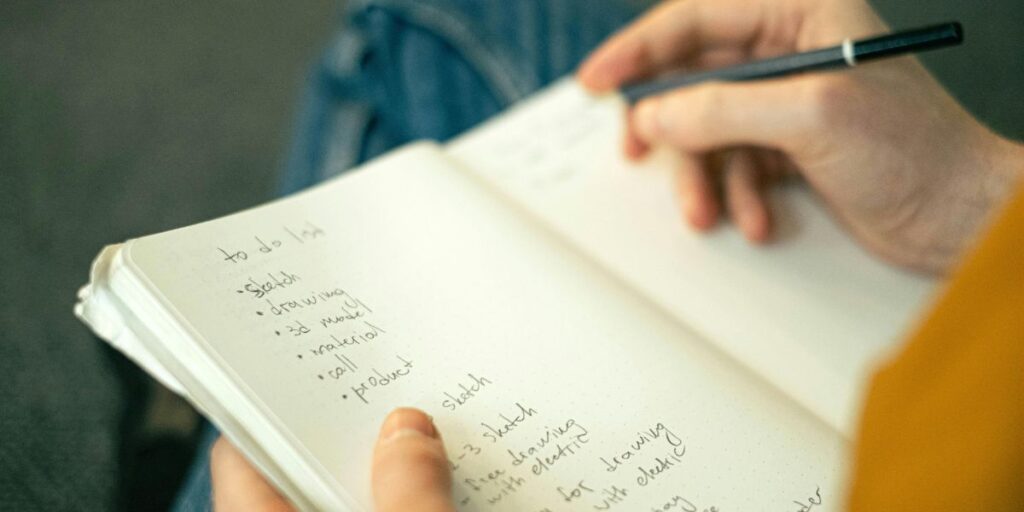 to do list
• sketch
• drawing
• 3d model
• material
• call
• product
sketch
2-3 sketch
- free drawing
with electric
for drawing
with electric